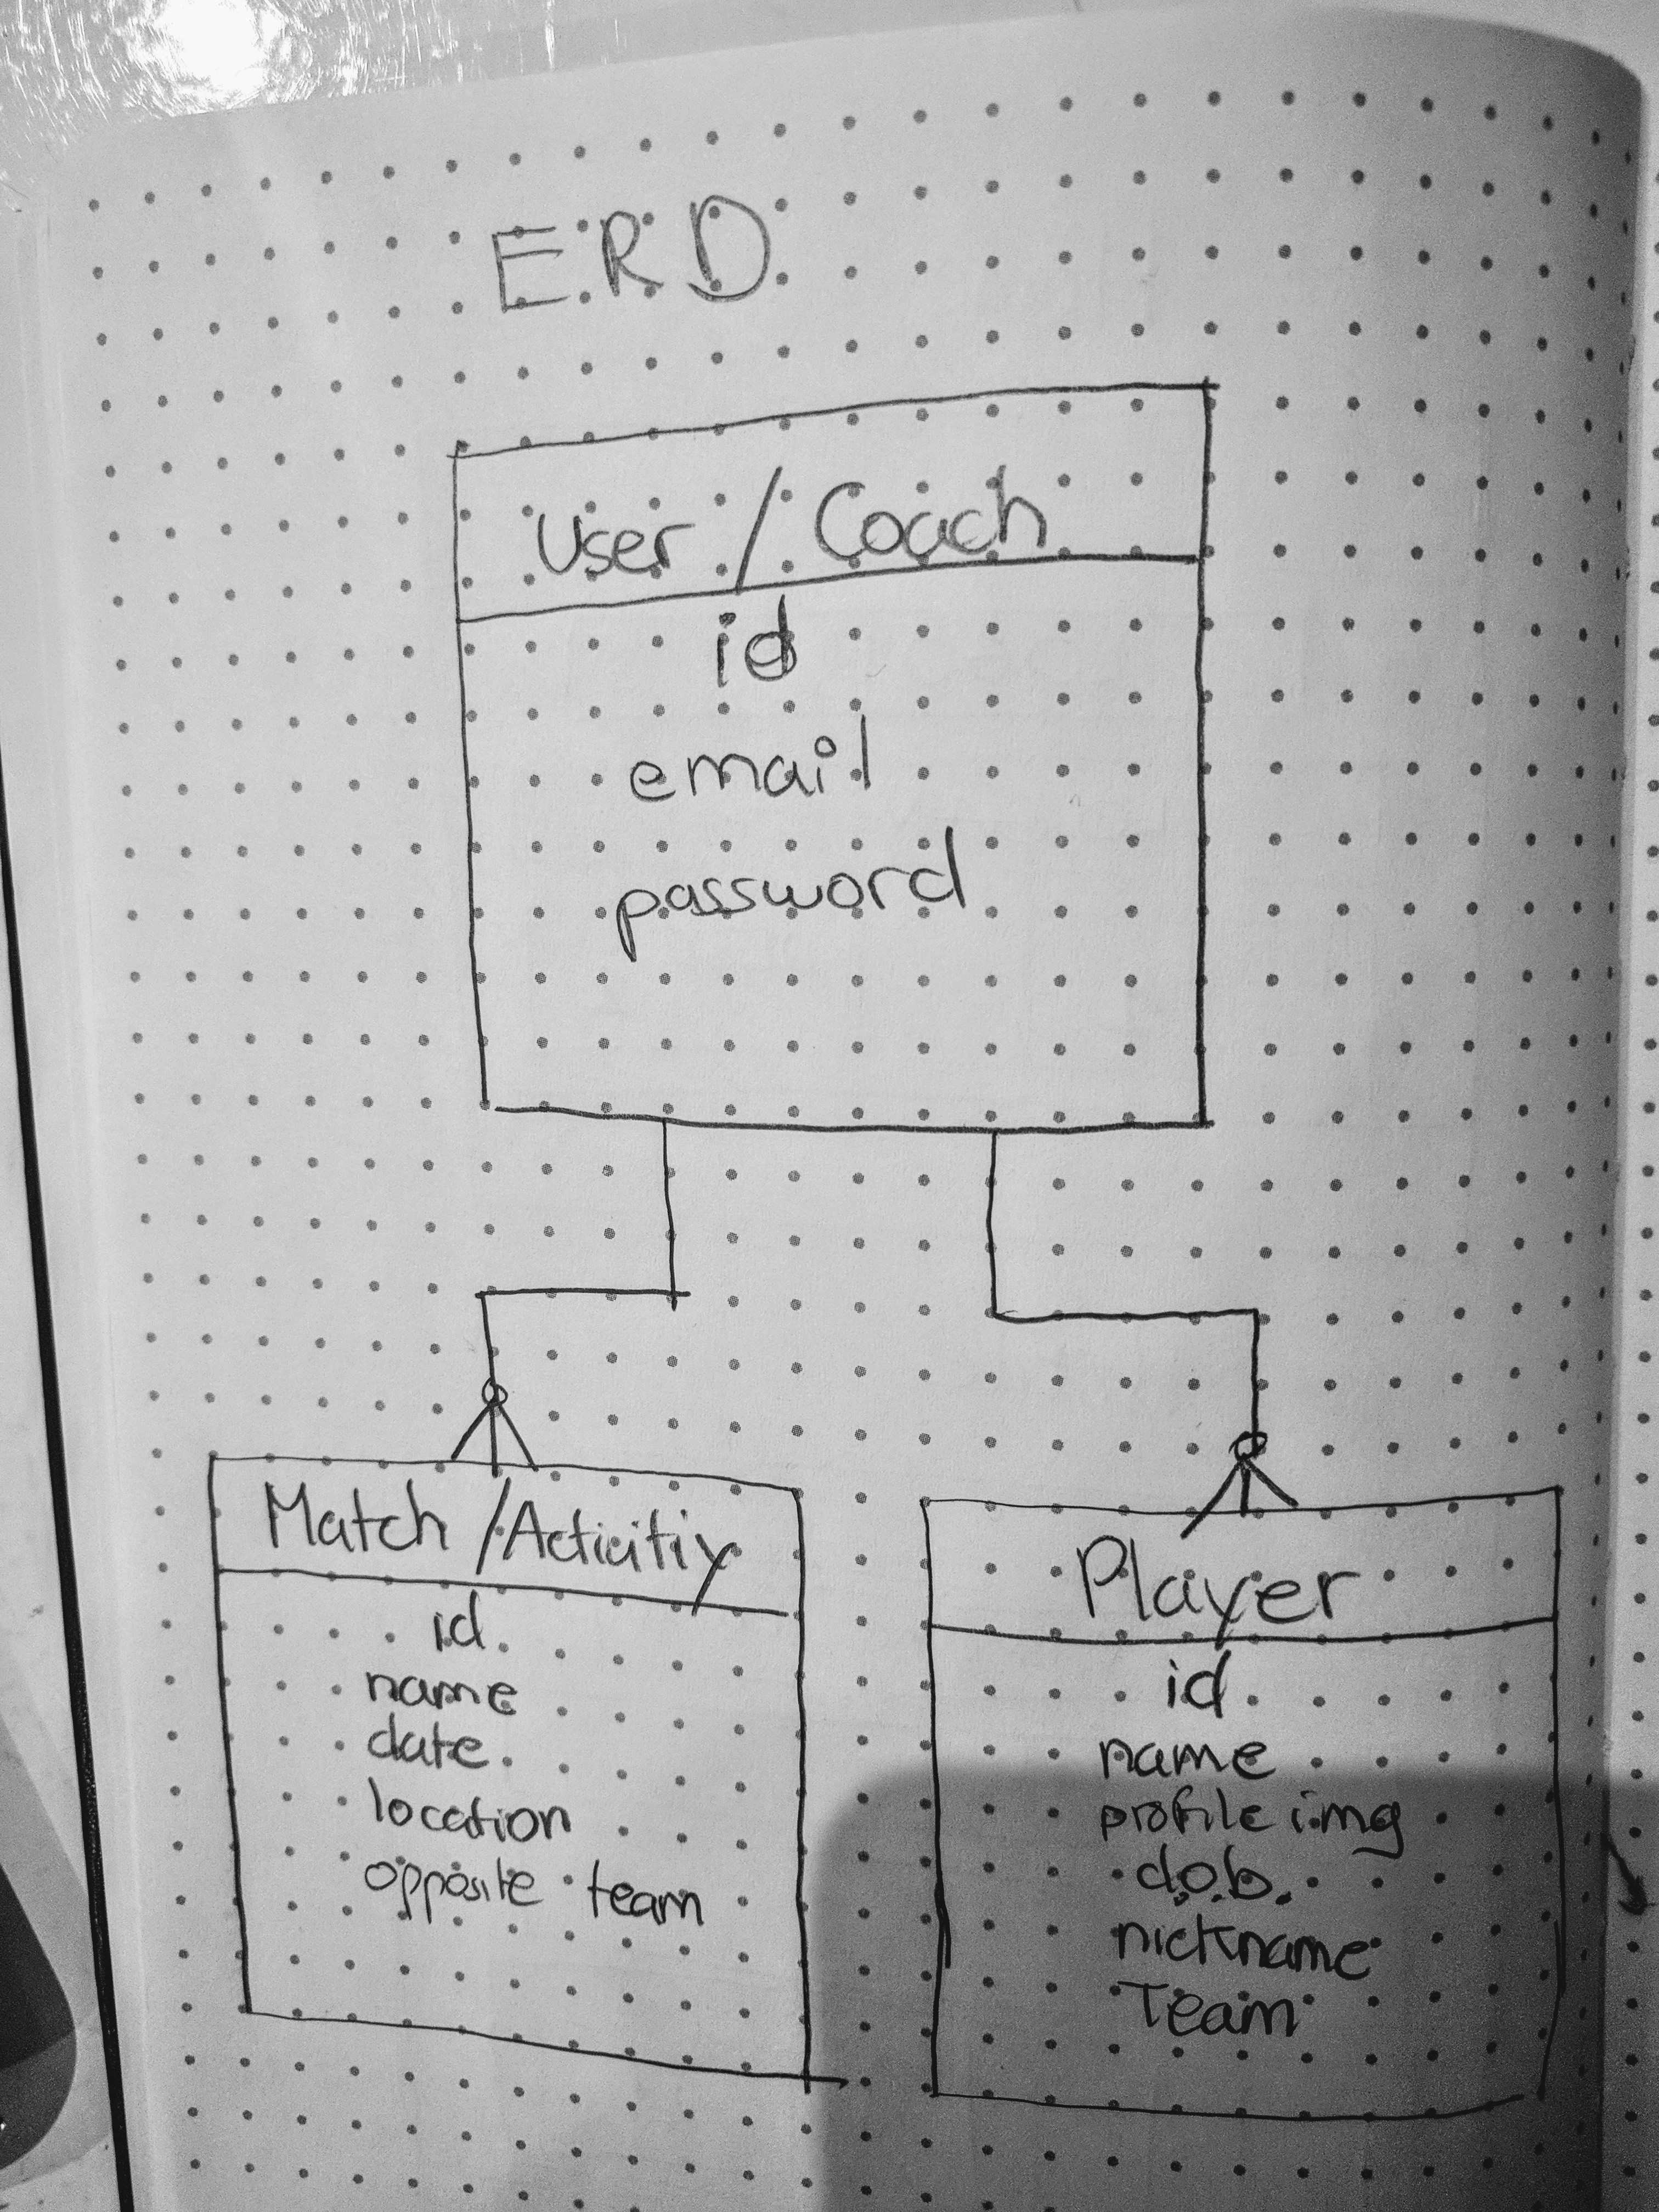 ERD
User / Coach
id
email
password
Match /Activitiy
id
name
date
location
opposite team
Player
id
name
profile img
d.o.b.
nickname
Team